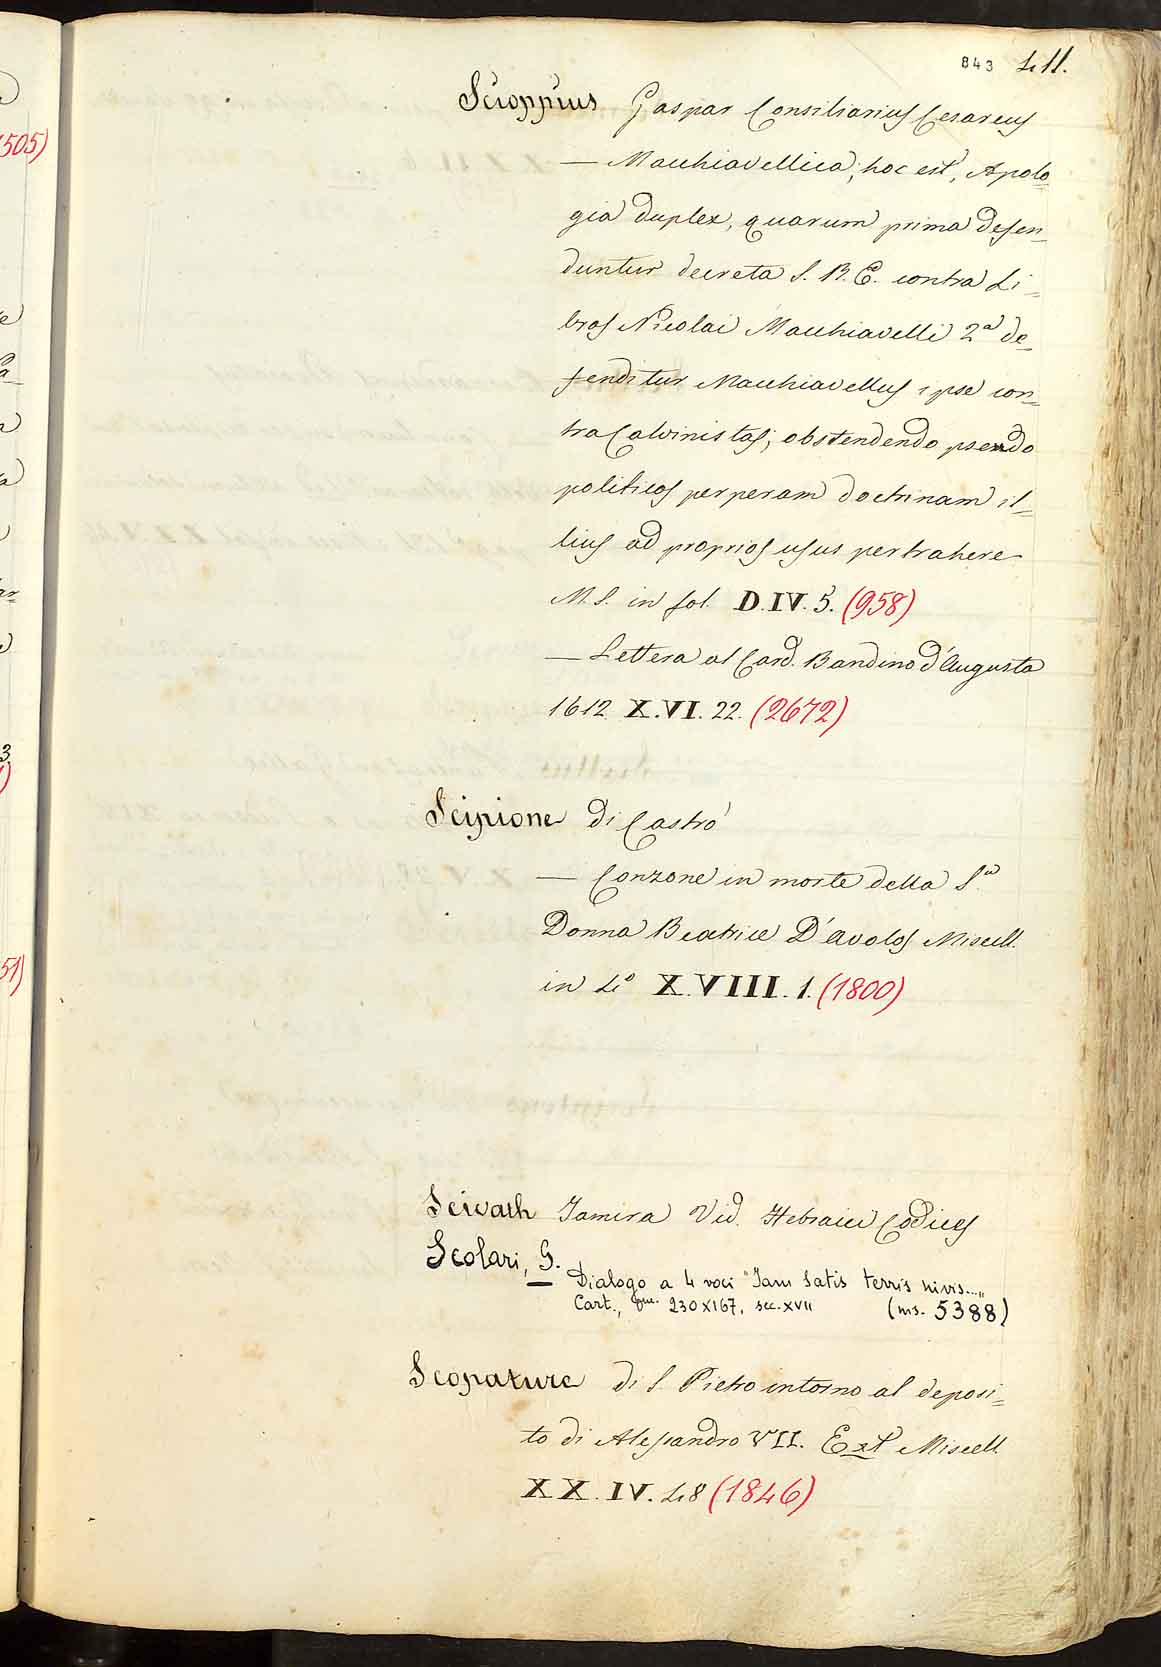 843 411.
Scioppius Gaspar Consiliarius Cesareus
— Macchiavellica, hoc est, Apolo
gia duplex, quarum prima defen_
duntur decreta S. R. E. contra Li_
bros Nicolai Macchiavelli 2ª de_
fenditur Macchiavellus ipse con_
tra Calvinistas; obstendendo pseudo
politicos perperam doctrinam il_
lius ad proprios usus pertrahere
M.S. in fol. D.IV.5. (958)
— Lettera al Card. Bandino d'Augusta
1612 X.VI.22. (2672)
Scipione di Castró
— Conzone in morte della Sª
Donna Beatrice D'avolos Miscell.
in 4º X.VIII.1. (1800)
Scivath Jamira Vid. Hebraici Codices
Scolari, G.
Dialogo a 4 voci "Iam satis terris nivis..."
Cart., 230X167, sec. XVII (ms. 5388)
Scopature di S. Pietro intorno al deposi_
to di Alessandro VII. Ext Miscell.
XX.IV.48 (1846)
505)
51)